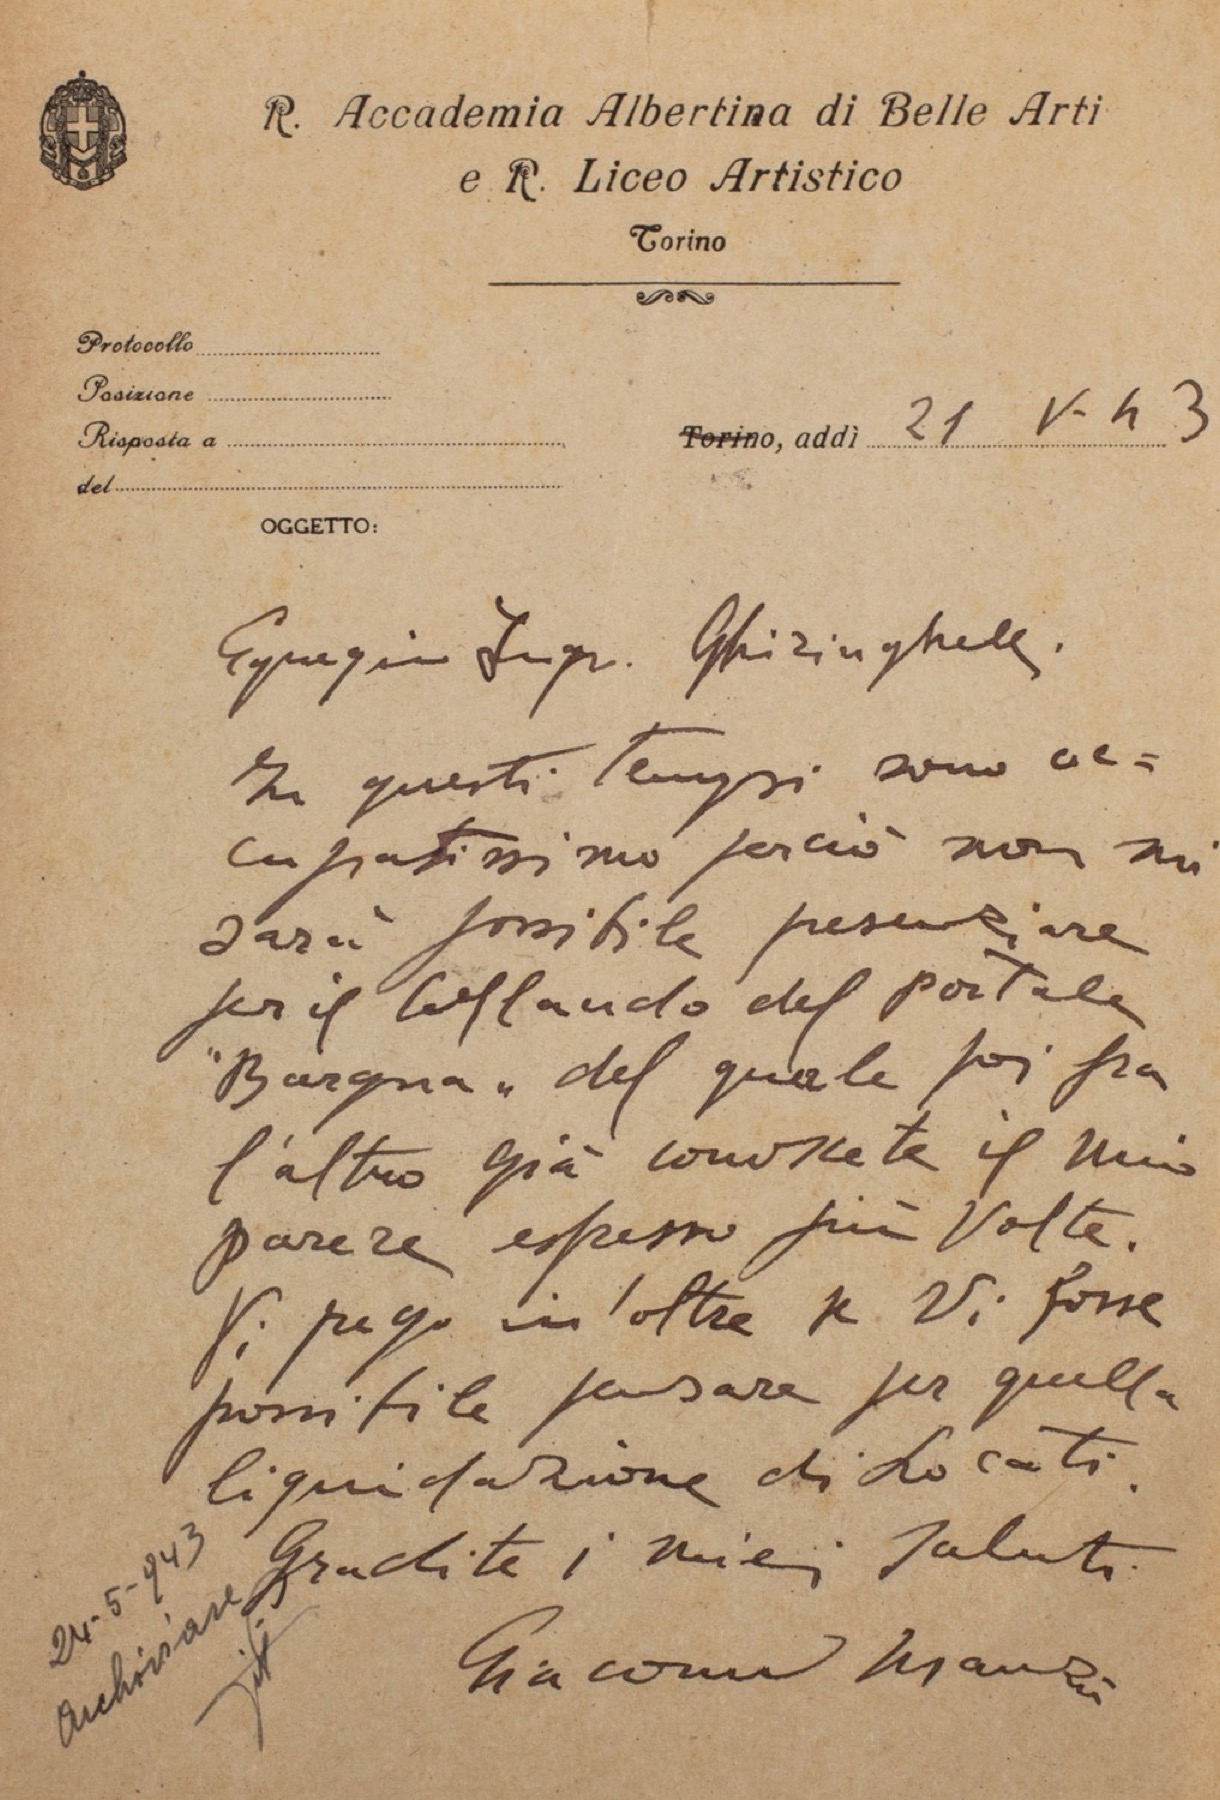 R. Accademia Albertina di Belle Arti
e R. Liceo Artistico
Torino
Protocollo
Posizione
Risposta a
del
Torino, addì 21 V-43
OGGETTO:
Egregio Ingr. Ghiringhelli.
In questi tempi sono oc=
cupatissimo perciò non mi
sarà possibile presenziare
per il collaudo del portale
"Bargna" del quale poi fra
l'altro già conoscete il mio
parere espresso più volte.
Vi prego in'oltre se Vi fosse
possibile pensare per quella
liquidazione di Locati.
Gradite i miei saluti.
Giacomo Manzù
24-5-943
Archiviare